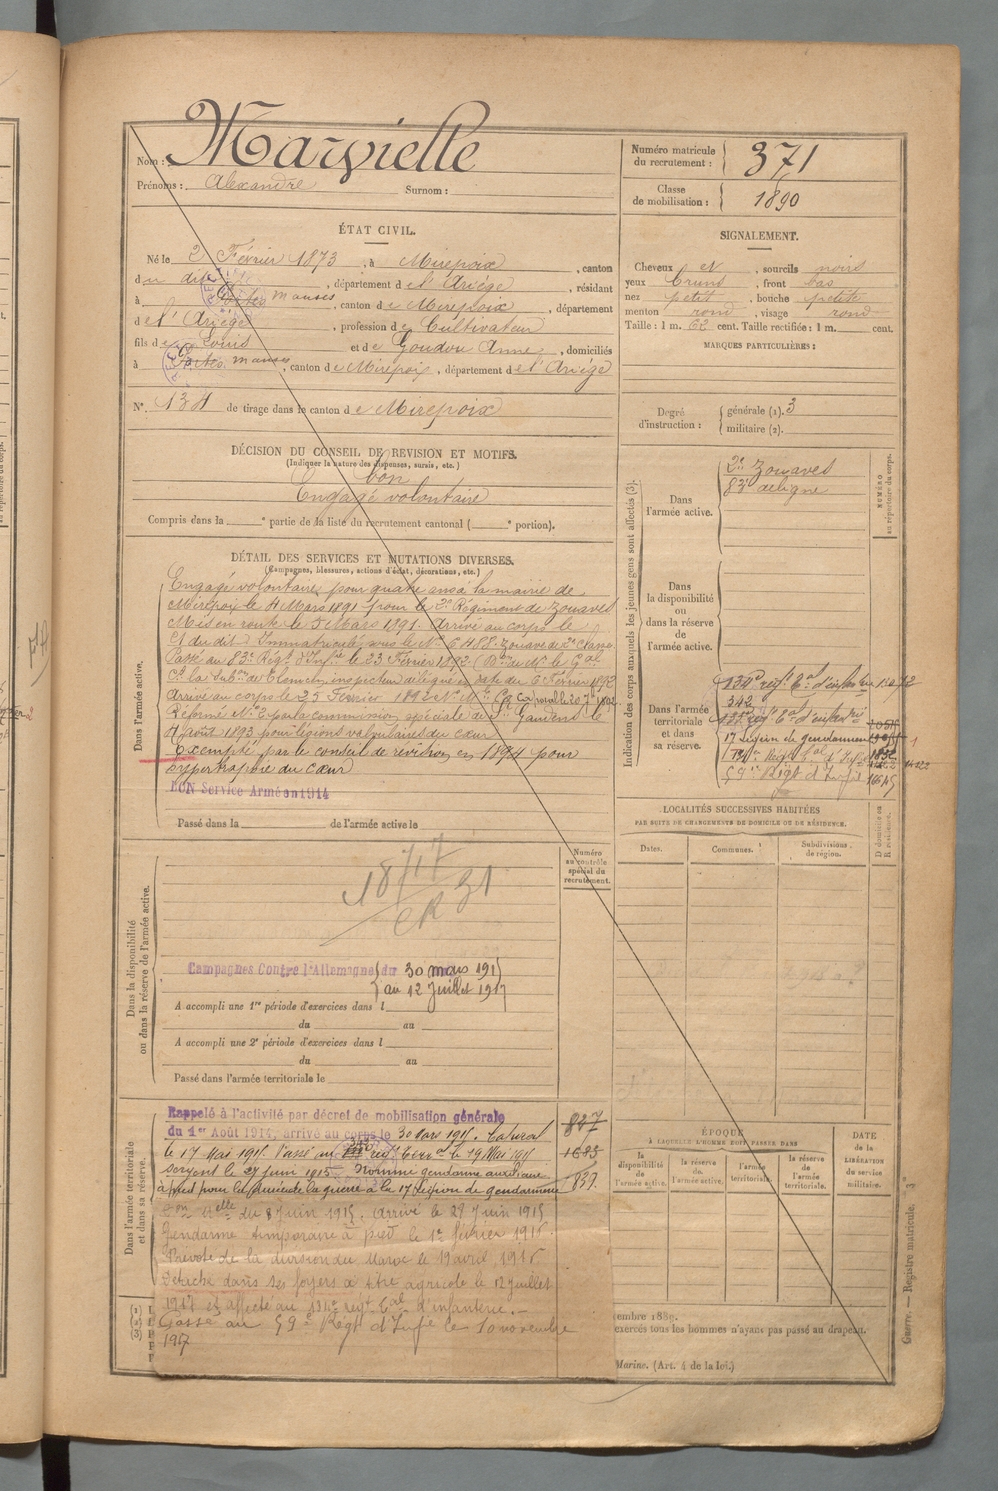 Nom : Marvielle
Prénoms : Alexandre Surnom :
Numéro matricule du recrutement : 371
Classe de mobilisation : 1890
ÉTAT CIVIL.
Né le 2 Février 1873, à Mirepoix, canton
du dit, département de l'Ariège, résidant
à manses, canton de Mirepoix, département
de l'Ariège, profession de Cultivateur
fils de Louis et de Goudou Anne, domiciliés
à manses, canton de Mirepoix, département de l'Ariège
N° 134 de tirage dans le canton de Mirepoix
SIGNALEMENT.
Cheveux et, sourcils noirs
yeux bruns, front bas
nez petit, bouche petite
menton rond, visage rond
Taille : 1 m. 62 cent. Taille rectifiée : 1 m. cent.
MARQUES PARTICULIÈRES :
Degré d'instruction : générale (1). 3
militaire (2).
DÉCISION DU CONSEIL DE REVISION ET MOTIFS.
(Indiquer la nature des dispenses, sursis, etc.)
bon
Engagé volontaire
Compris dans la e partie de la liste du recrutement cantonal ( e portion).
DÉTAIL DES SERVICES ET MUTATIONS DIVERSES.
(Campagnes, blessures, actions d'éclat, décorations, etc.)
Dans l'armée active.
Engagé volontaire pour quatre ans à la mairie de
Mirepoix le 4 Mars 1891 pour le 2e Régiment de Zouaves
Mis en route le 5 Mars 1891. Arrivé au corps le
dudit. Immatriculé sous le No 6488. Zouave de 2e classe
Passé au 83e Régt d'Infie le 23 Février 1892. le Gal
Ct la Subon de Tlemcen, inspecteur délégué en date du 6 Février 1892
Arrivé au corps le 25 Février 1892 Caporal le
Réformé No 2 par la commission spéciale de St Gaudens le
4 Août 1893 pour lésions valvulaires du cœur
Exempté par le conseil de révision en 1894 pour
hypertrophie du cœur
BON Service Armé en 1914
Passé dans la de l'armée active le
Indication des corps auxquels les jeunes gens sont affectés (3).
NUMÉRO au répertoire du corps.
Dans l'armée active.
2e Zouaves
83e de ligne
Dans la disponibilité ou dans la réserve de l'armée active.
Dans l'armée territoriale et dans sa réserve.
134e régt Tal d'infanterie
342
135e régt Tal d'infanterie
17 Légion de gendarmerie
134e Régt Tal d'Infie
59e Régt d'Infie
LOCALITÉS SUCCESSIVES HABITÉES
PAR SUITE DE CHANGEMENTS DE DOMICILE OU DE RÉSIDENCE.
Dates. Communes. Subdivisions de région. D domicile ou R résidence.
Dans la disponibilité ou dans la réserve de l'armée active.
Numéro au contrôle spécial du recrutement.
18717
CR 31
Campagnes Contre l'Allemagne du 30 mars 1915
au 12 Juillet 1917
A accompli une 1re période d'exercices dans l
du au
A accompli une 2e période d'exercices dans l
du au
Passé dans l'armée territoriale le
Dans l'armée territoriale et dans sa réserve.
Rappelé à l'activité par décret de mobilisation générale
du 1er Août 1914, arrivé au corps le 30 Mars 1915. Caporal
le 17 Mai 1915. Passé au régt terr. le 19 Mai 1915
Sergent le 27 Juin 1915 Nommé gendarme auxiliaire
à pied pour la durée de la guerre à la 17 Légion de gendarmerie
Don Melle du 8 Juin 1915. Arrivé le 28 Juin 1915
Gendarme temporaire à pied le 1er février 1916.
Prévôté de la division du Maroc le 19 avril 1916
Détaché dans ses foyers à titre agricole le 12 Juillet
1917 et affecté au 134e régt Tal d'infanterie.-
Passé au 59e Régt d'Infie le 10 novembre
1917
ÉPOQUE
À LAQUELLE L'HOMME DOIT PASSER DANS
la disponibilité de l'armée active. la réserve de l'armée active. l'armée territoriale. la réserve de l'armée territoriale.
DATE de la LIBÉRATION du service militaire.
embre 1889.
exercés tous les hommes n'ayant pas passé au drapeau.
Marine. (Art. 4 de la loi.)
Guerre. — Registre matricule. 3